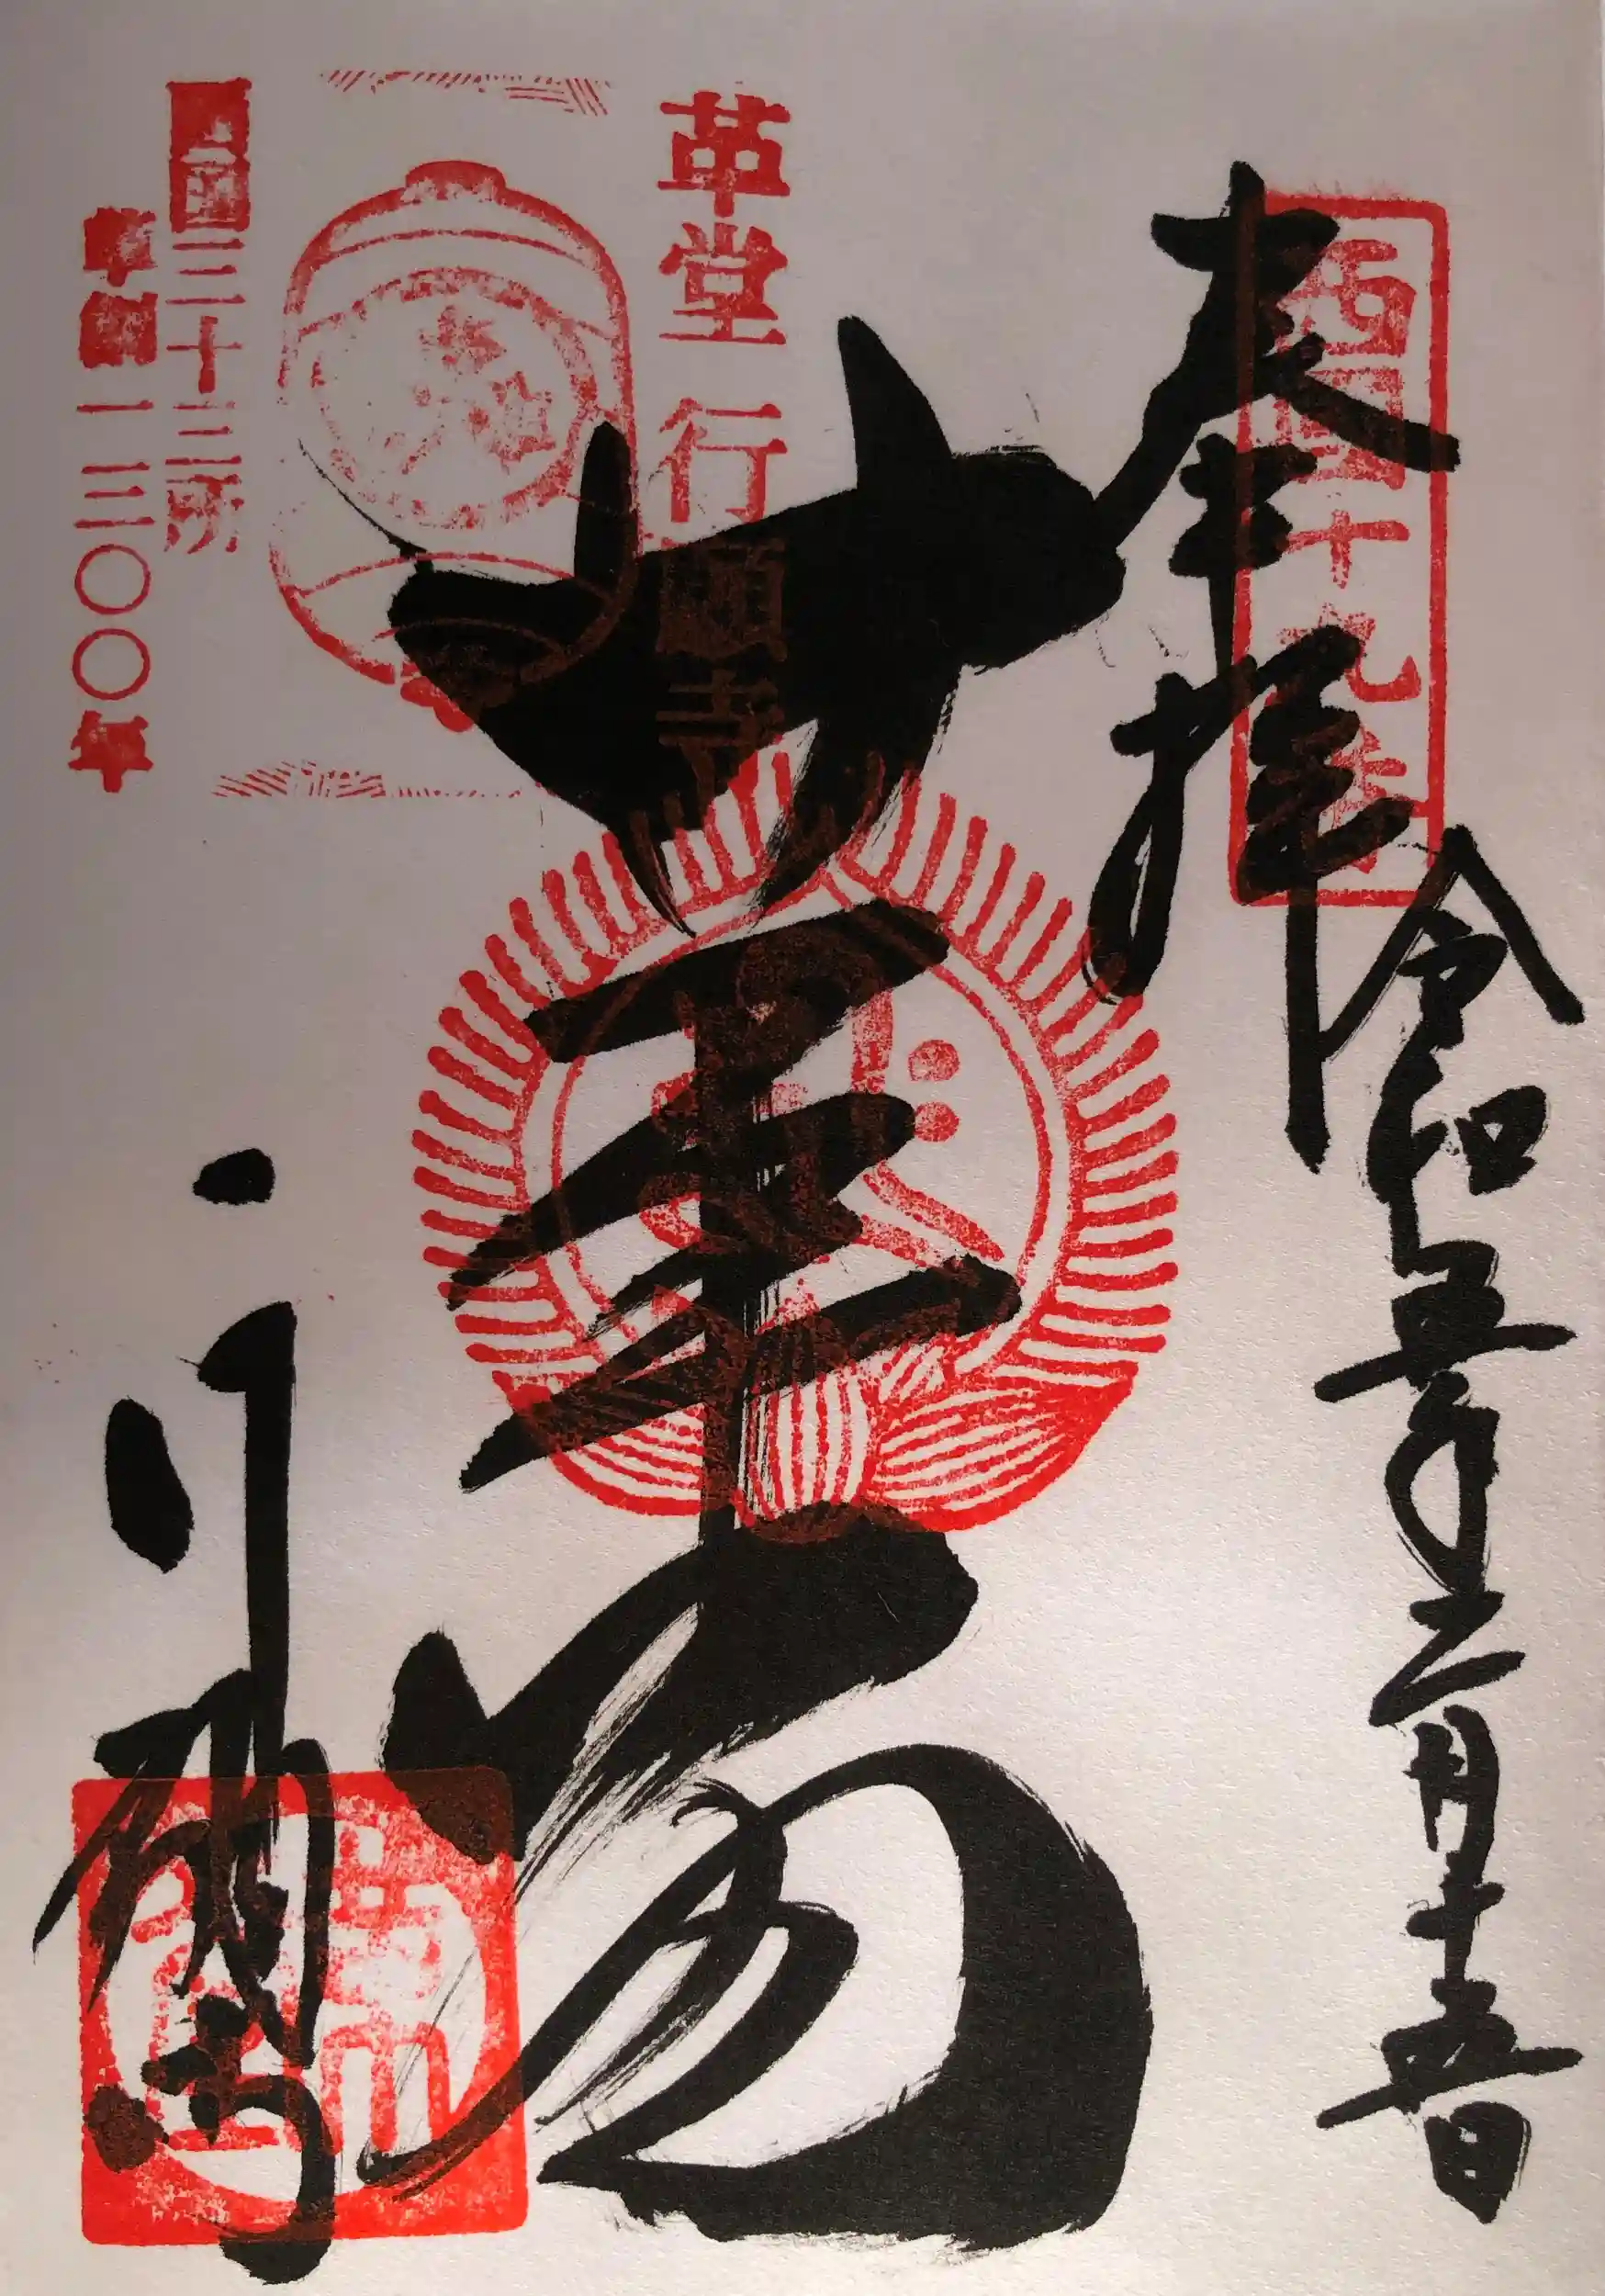 奉拝
西国十九番
令和五年二月十五日
革堂 行願寺
革堂
西国三十三所
草創一三〇〇年
行願寺